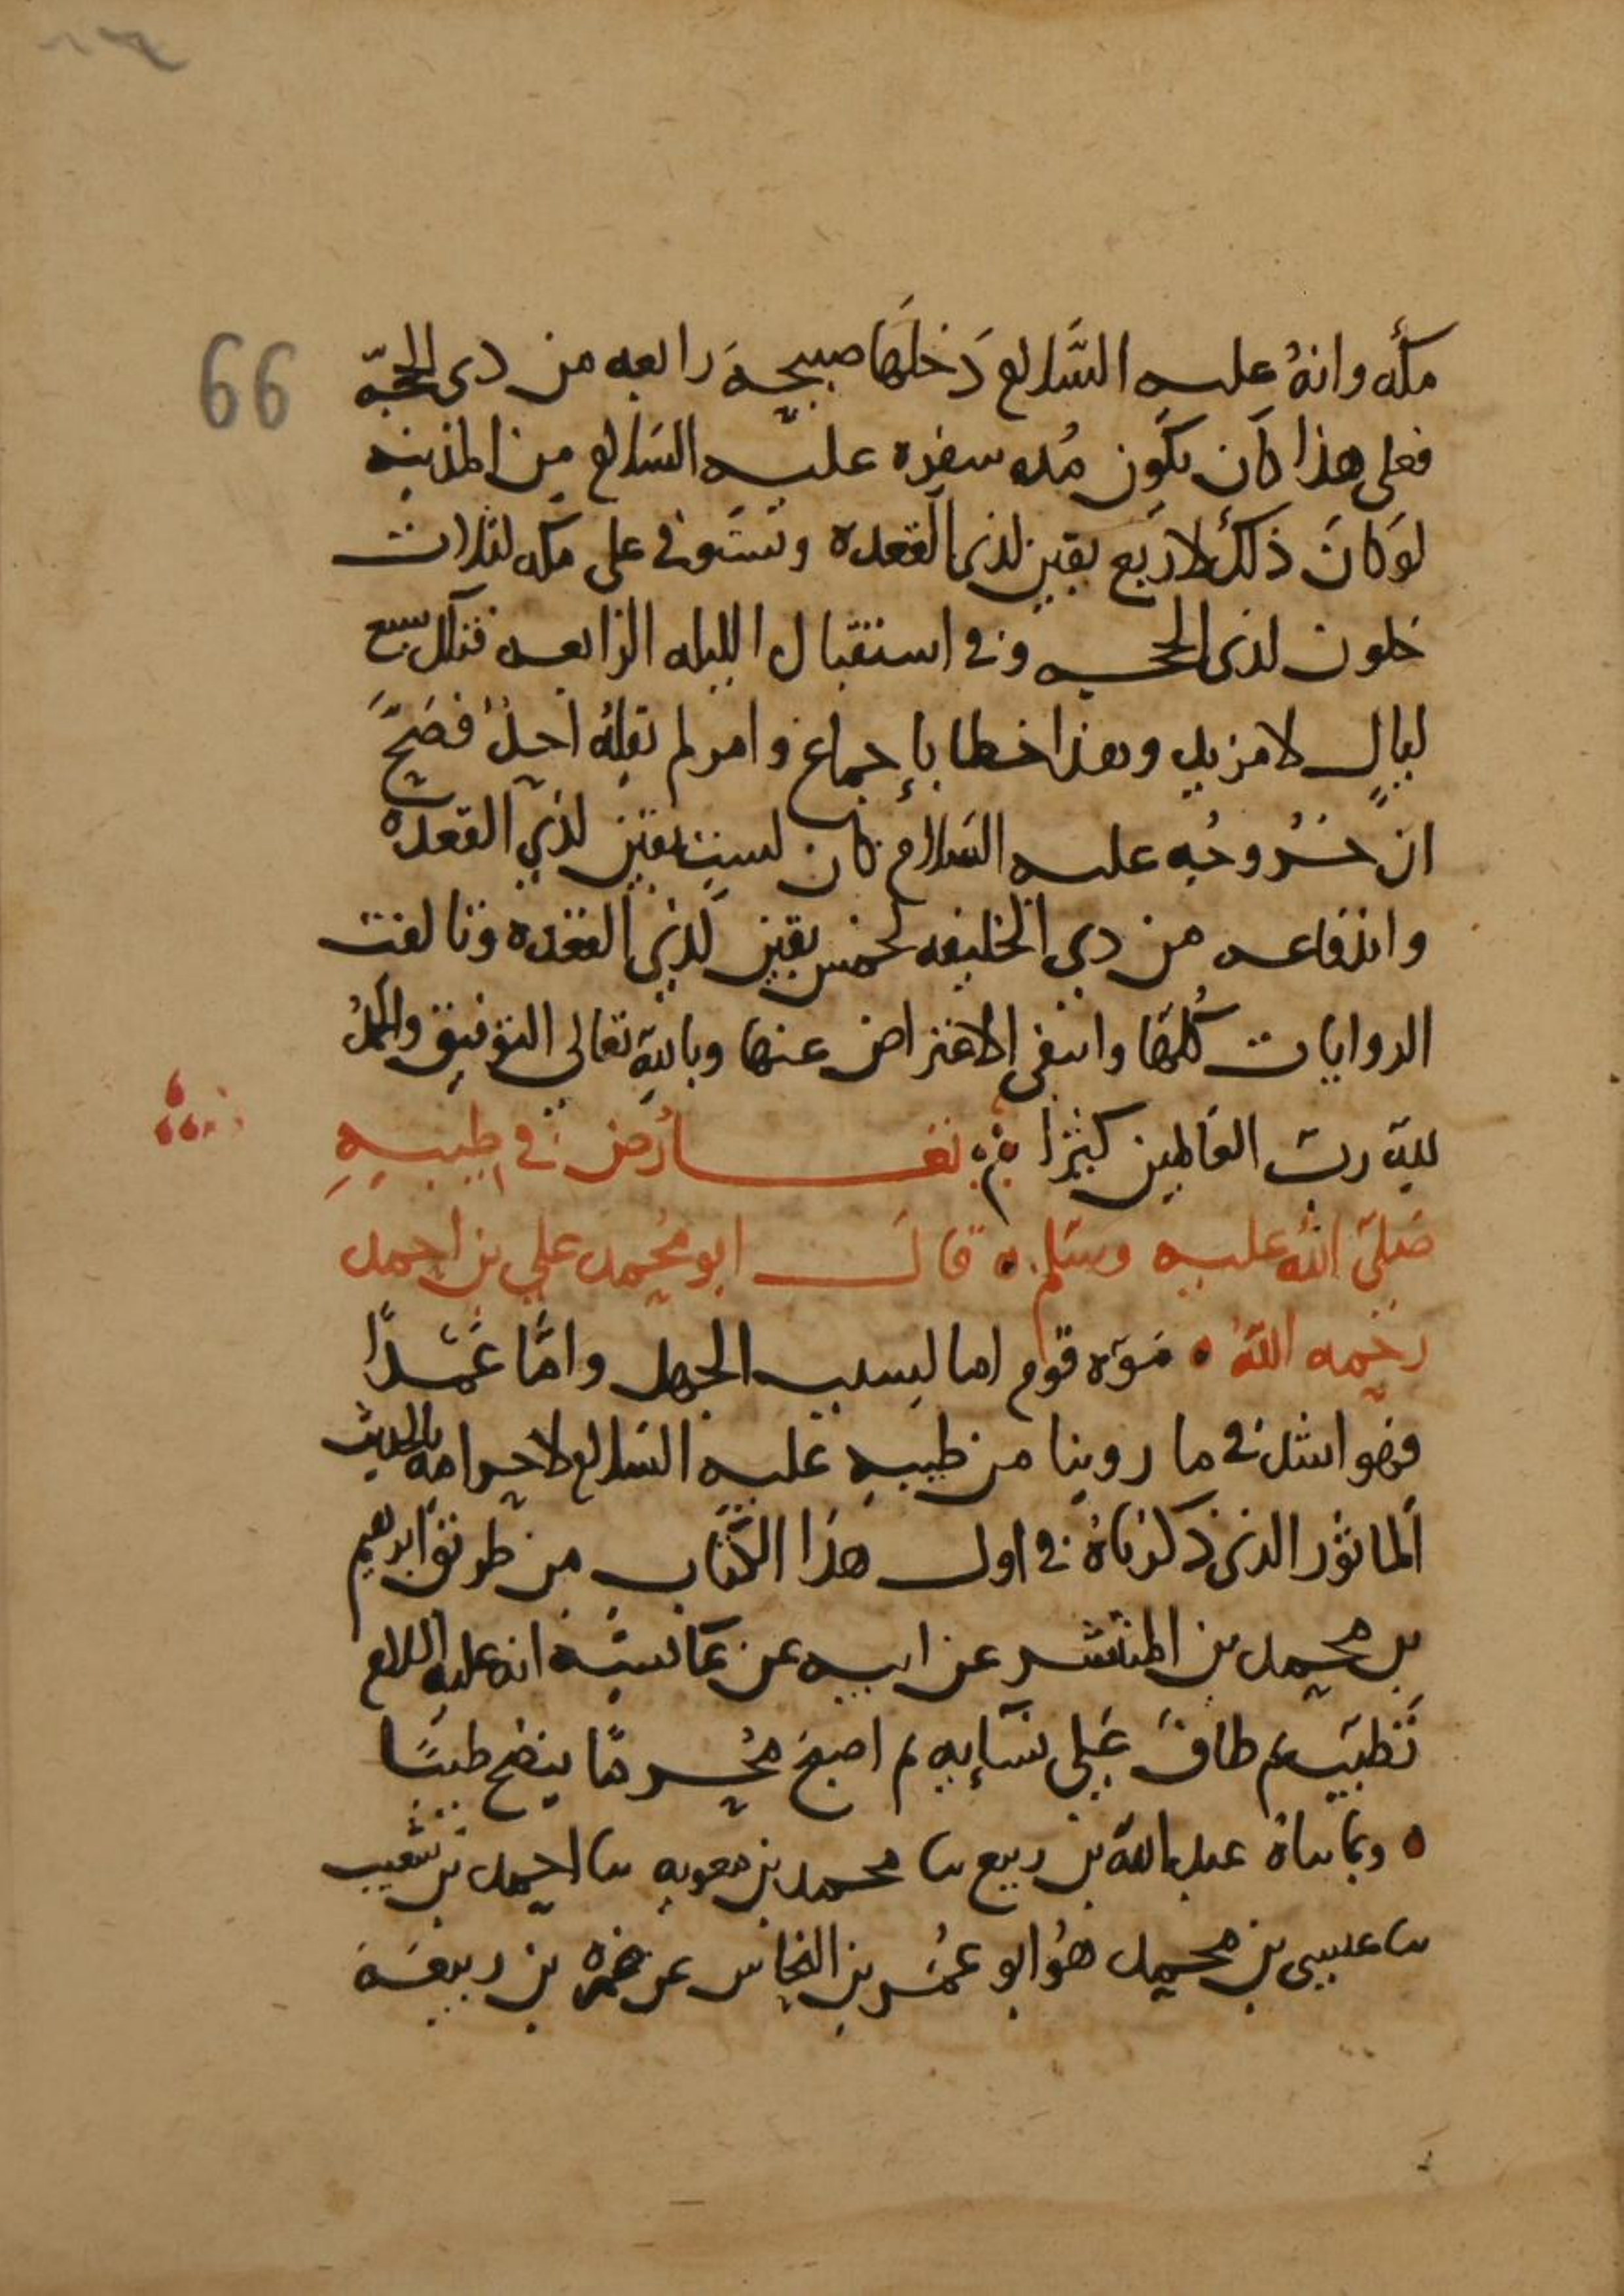 66
مكة وانهُ عليه السَّلام دَخلَها صبيحةَ رابعه من ذى الحجّه
فعلى هذا كان تكون مُده سفره عليه السَلام من المدينه
لوَ كانَ ذلكَ لاربع بقين لذى القعده وتستوفى على مكه لثلاث
خلون لذى الحجه وفى استقبال الليله الرابعه فتلك سبع
ليالٍ لا مزيد وهذا خطا بإجماع وامر لم يقلهُ احدٌ فصَحَّ
ان خُروجُه عليه السَلام كان لستٍ بقين لذي القعده
واندفاعه من ذى الحليفه لخمس بقين لذي القعده وتالفت
الروايات كُلّها وانتفى الاعتراض عنها وباللهِ تعالى التوفيق والحمدُ
للهِ ربّ العَالمين كثيرًا تعارُض فى طِيبِهِ
صَلّى اللهُ عليه وسَلم قال ابو مُحمد علي بن احمد
رحِمه اللهُ مَوّه قوم اما لسبب الجهل وامَّا عَمدًا
فى ما روينا من طيبهِ عليه السَلام لاحرامه بالحديث
المَاثور الذى ذكرناهُ فى اول هذا الكتاب من طريق ابرهيم
بن محمد بن المنتشر عن ابيه عن عَائشه انه عليه السلام
تَطيّب ثم طافَ عَلى نسَائِهِ ثم اصبحَ مُحرمًا ينضح طيبًا
وبما ساهُ عبد الله بن ربيع سا محمد بن معويه سا احمد بن شعيب
سا عيسى بن محمد هُو ابو عمُير بن النحاس عن ضمره بن ربيعَه